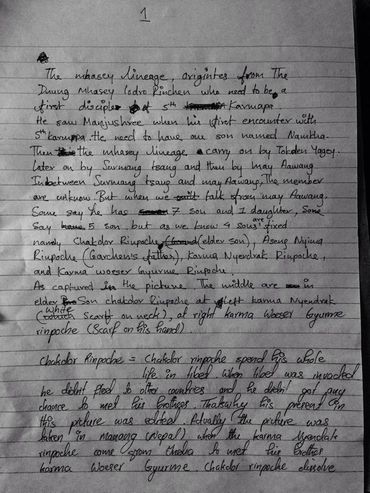 1
The mhasey lineage, origintes from The
Drung Mhasey lodro Rinchen who need to be a
first disciple of 5th Karmapa.
He saw Manjushree when his first encounter with
5th karmapa. He need to have one son named Namkha.
Then the mhasey lineage carry on by Tokden Yagey.
Later on by Surmang tsang and then by may Aawang
Inbetween Surmang tsang and may Aawang, The member
are unknow. But when we talk from may Aawang.
Some say he has 7 son and 1 daughter, Some
Say 5 son, but as we know 4 sons are fixed
namly Chakdor Rinpoche (elder son), Aseng Nyima
Rinpoche (Garchen's father), Karma Nyendrak Rinpoche,
and Karma woeser Gyurme Rinpoche.
As captured in the picture. The middle are in
elder Son chakdor Rinpoche at left karma Nyendrak
(white Scarf on neck), at right karma Woeser Gyurme
rinpoche (Scarf on his hand).
Chakdor Rinpoche = Chakdor rinpoche spend his whole
life in tibet when tibet was invaded
he didn't flied to other countries and, he didn't got any
chance to met his brothers. Thatswhy his present in
this picture was edited. Actually the picture was
taken in manang (Nepal), when the karma Nyendak
rinpoche come from to met his brother
karma Woeser Gyurme. Chakdor rinpoche